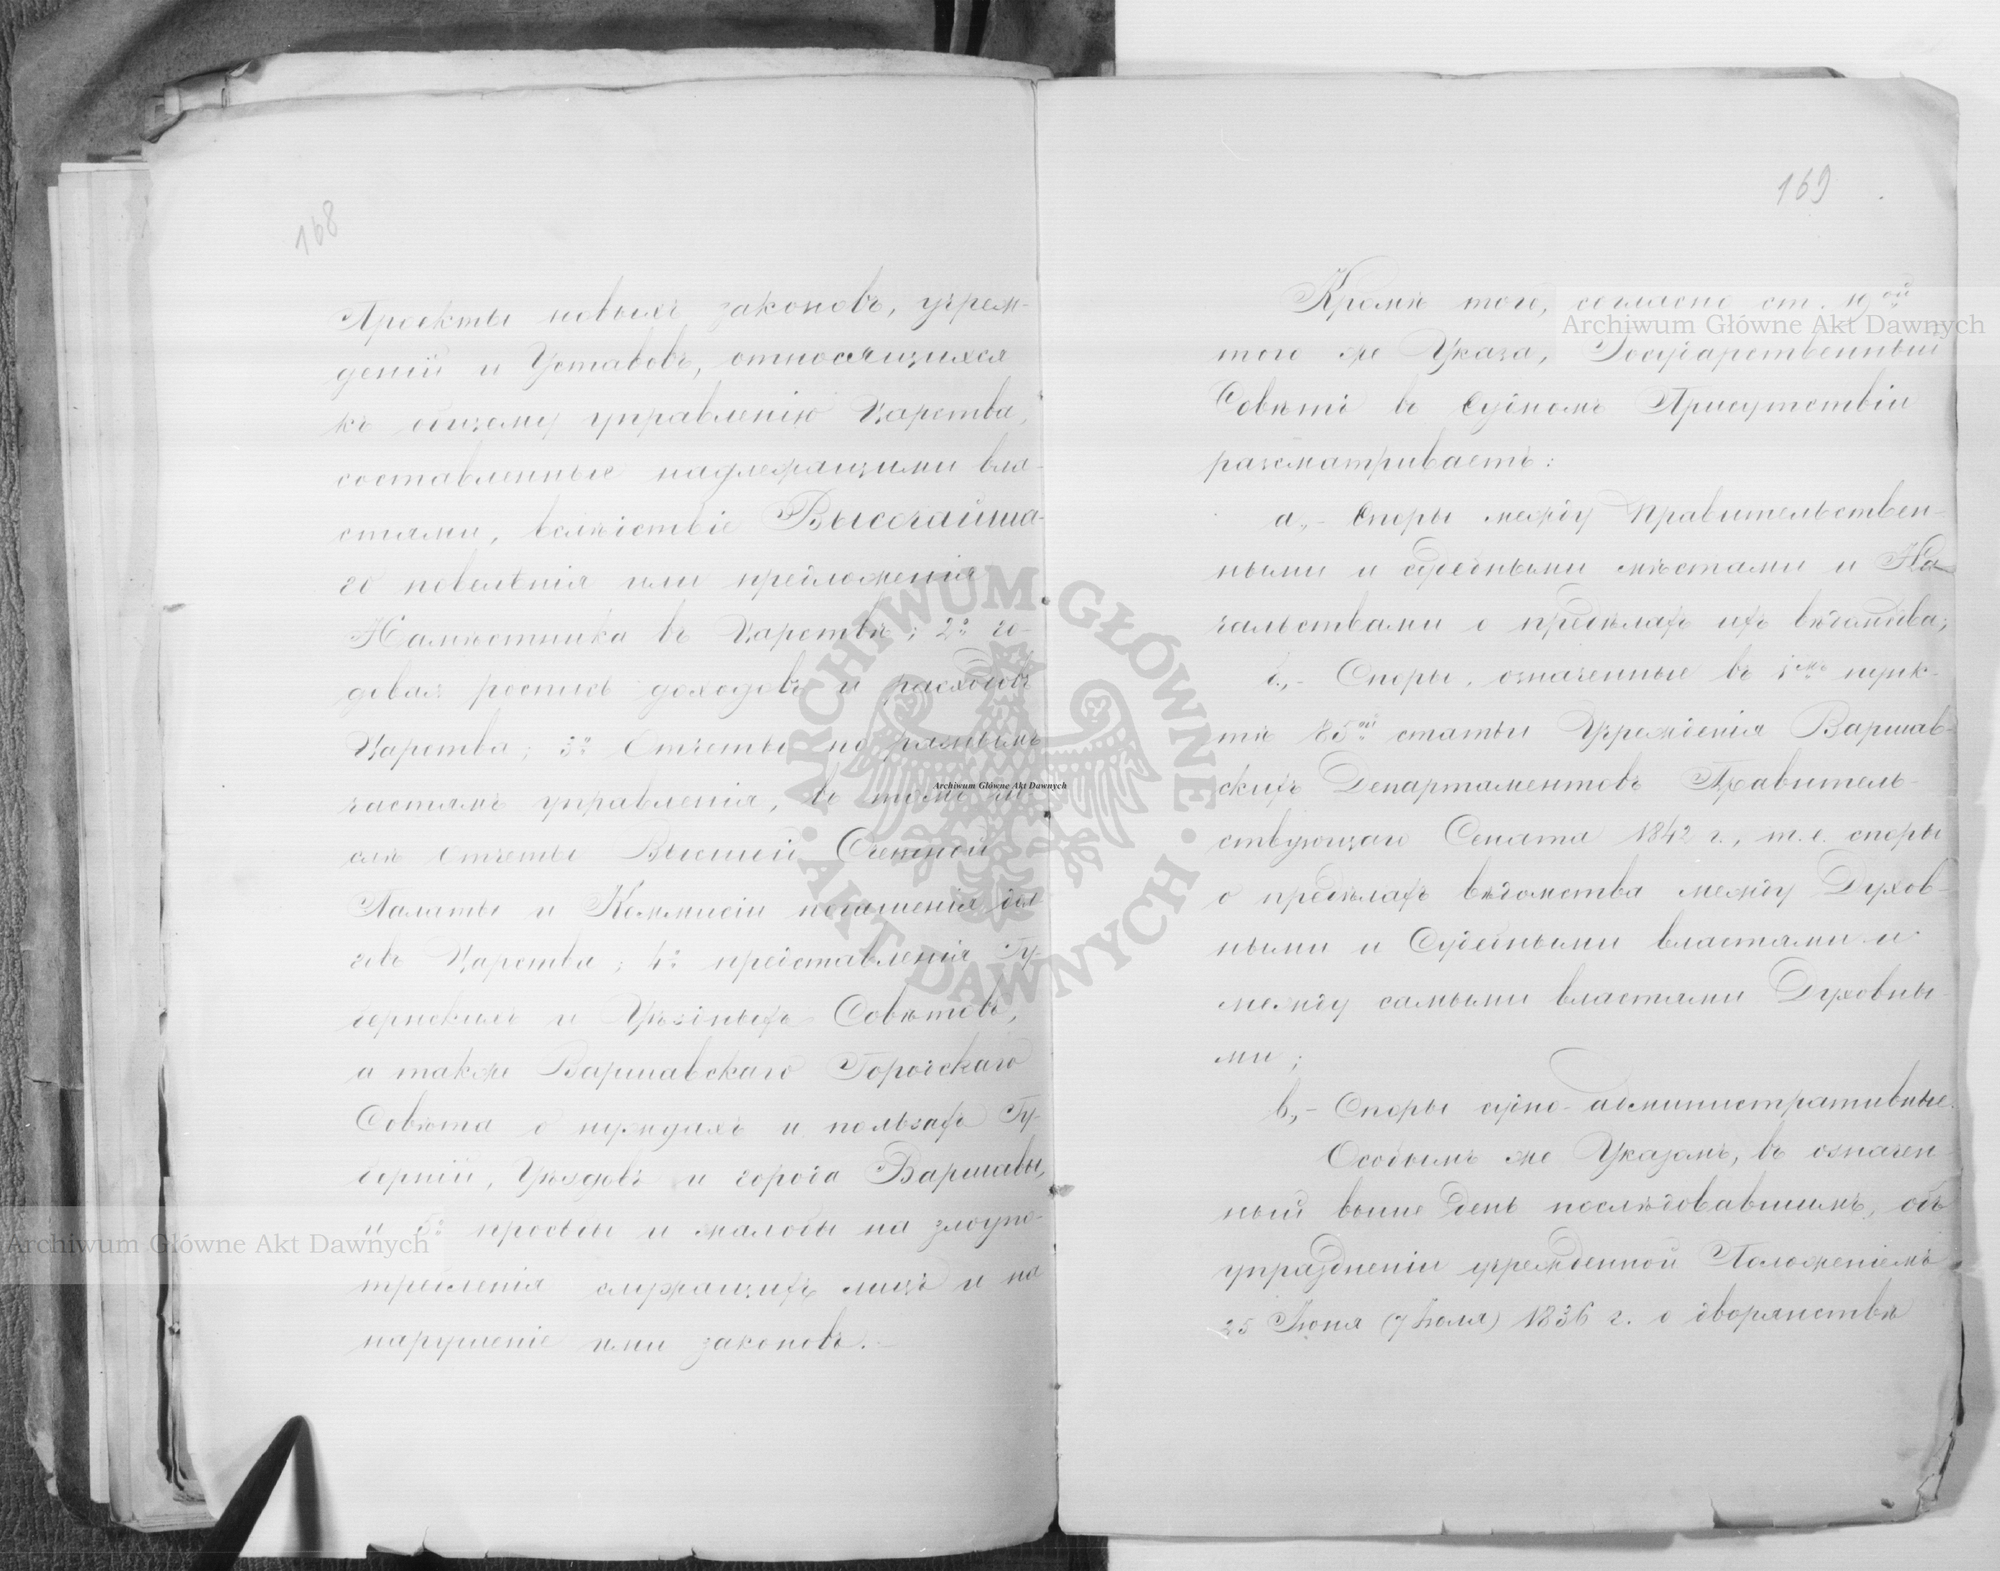 168
Проекты новыхъ законовъ, учреж-
деній и Уставовъ, относящихся
къ общему управленію Царства,
составленные надлежащими вла-
стями, вслѣдствіе Высочайша-
го повелѣнія или предложенія
Намѣстника въ Царствѣ; 2º го-
довая роспись доходовъ и расходовъ
Царства; 3º Отчеты по разнымъ
частямъ управленія, въ томъ чи-
слѣ отчеты Высшей Счетной
Палаты и Коммисіи погашенія дол-
говъ Царства; 4º представленія Гу-
бернскихъ и Уѣздныхъ Совѣтовъ,
а также Варшавскаго Городскаго
Совѣта о нуждахъ и пользахъ Гу-
берній, Уѣздовъ и города Варшавы,
и 5º просьбы и жалобы на злоупо-
требленія служащихъ лицъ и на
нарушеніе ими законовъ.
169
Кромѣ того, согласно ст. 19ой
того же Указа, Государственный
Совѣтъ въ Судномъ Присутствіи
разсматриваетъ:
а.,- Споры между Правительствен-
ными и судебными мѣстами и На-
чальствами о предѣлахъ ихъ вѣдомства;
б.,- Споры, означенные въ 1мъ пунк-
тѣ 85ой статьи Учрежденія Варшав-
скихъ Департаментовъ Правитель-
ствующаго Сената 1842 г., т. е. споры
о предѣлахъ вѣдомства между Духов-
ными и Судебными властями и
между самыми властями Духовны-
ми;
в.,- Споры судно-административные.
Особымъ же Указомъ, въ означен-
ный выше день послѣдовавшимъ, объ
упраздненіи учрежденной Положеніемъ
25 Іюня (7 Іюля) 1836 г. о дворянствѣ
Archiwum Główne Akt Dawnych
Archiwum Główne Akt Dawnych
Archiwum Główne Akt Dawnych
ARCHIWUM GŁÓWNE AKT DAWNYCH